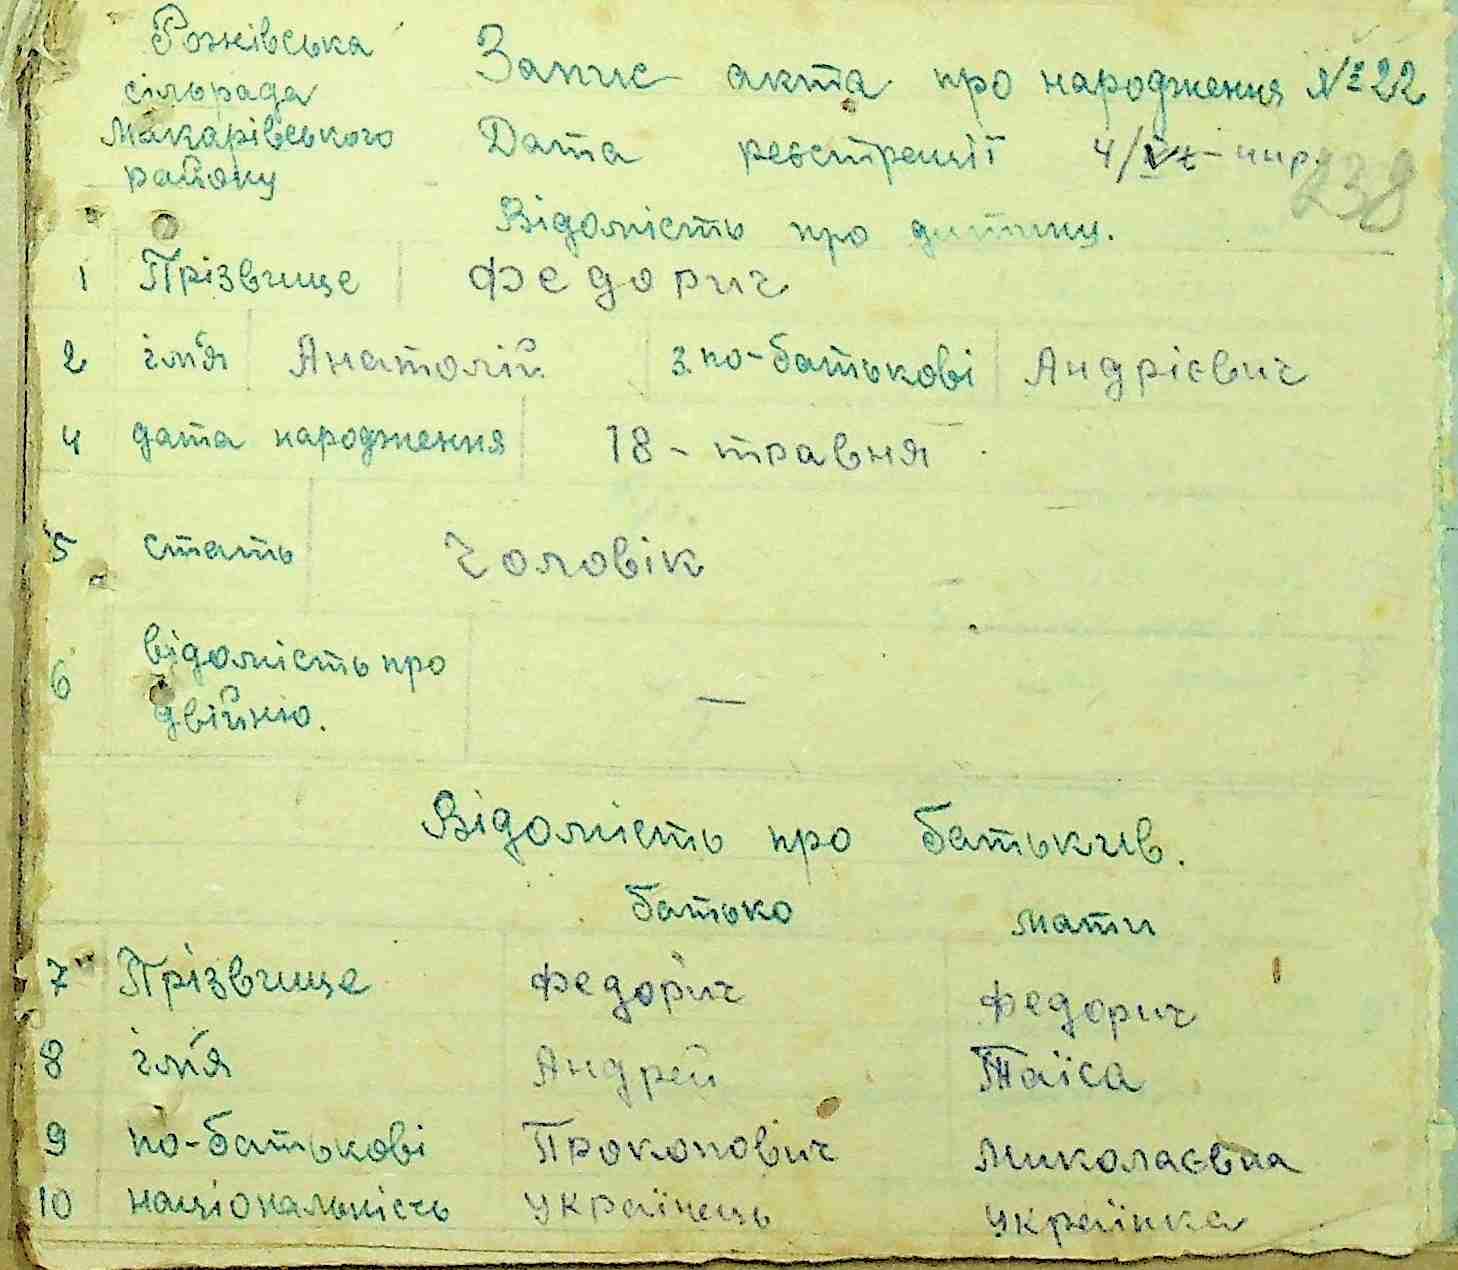 Рожівська
сільрада
Макарівського
району
Запис акта про народження № 22
Дата реєстрециії 4/
238
Відомість про дитину.
1 Прізвище Федорич
2 ім'я Анатолій 3. по-батькові Андрієвич
4 дата народження 18 - травня
5 стать Чоловік
6 відомість про
двійню. —
Відомість про батьків.
батько мати
7 Прізвище Федорич Федорич
8 ім'я Андрей Таїса
9 по-батькові Прокопович Миколаєвна
10 національність Українець Українка